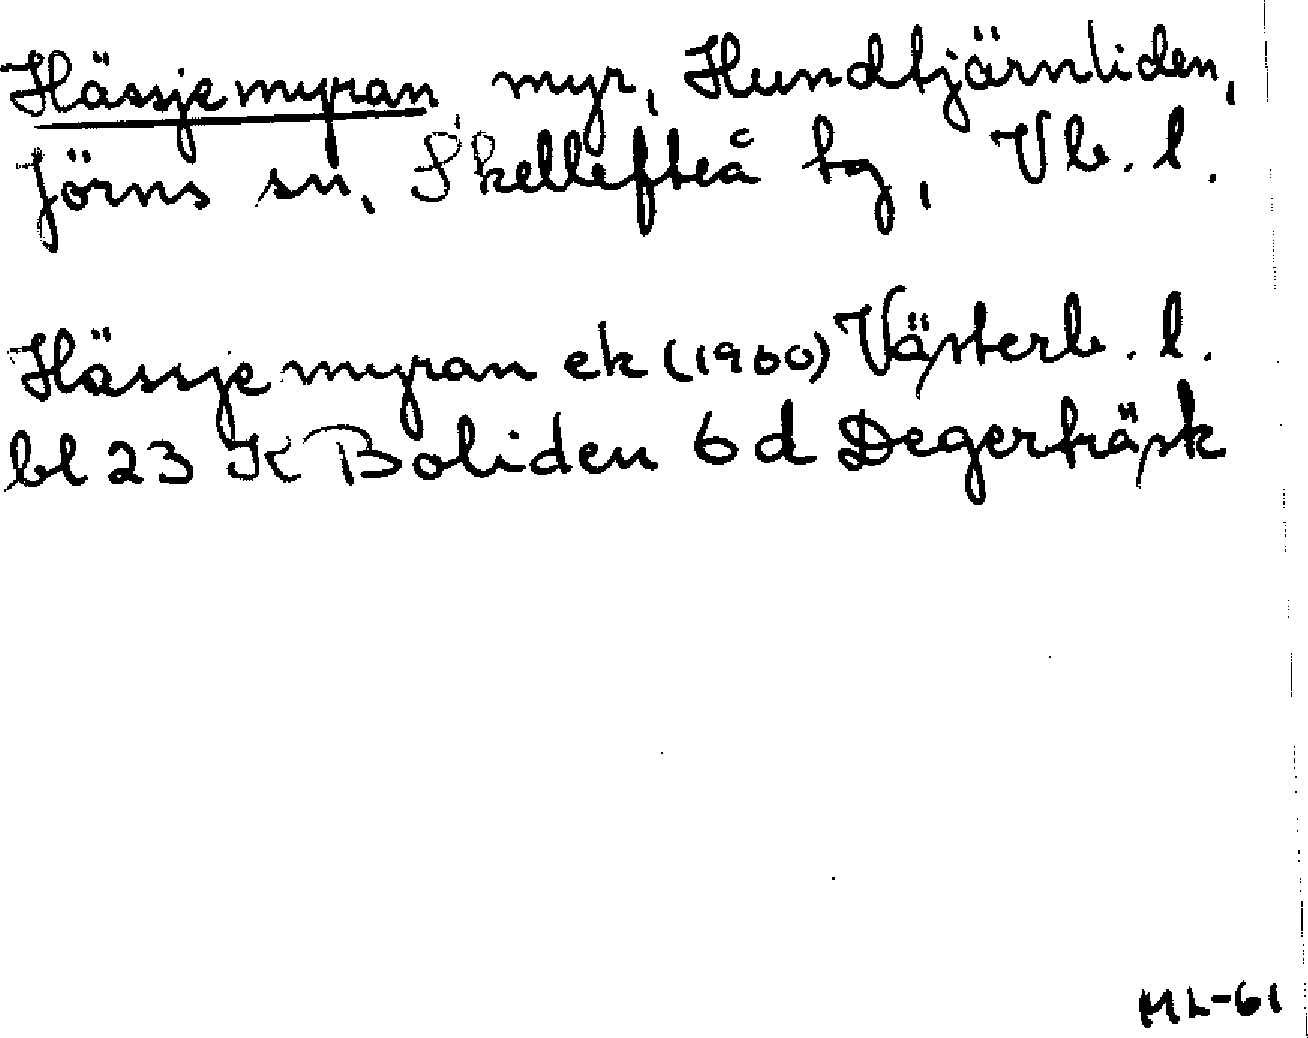 Hässjemyran myr, Hundtjärnliden,
Jörns sn, Skellefteå tg, Vb. l.
Hässjemyran ek (1960) Västerb. l.
bl 23 K Boliden 6 d Degerträsk
ML-61